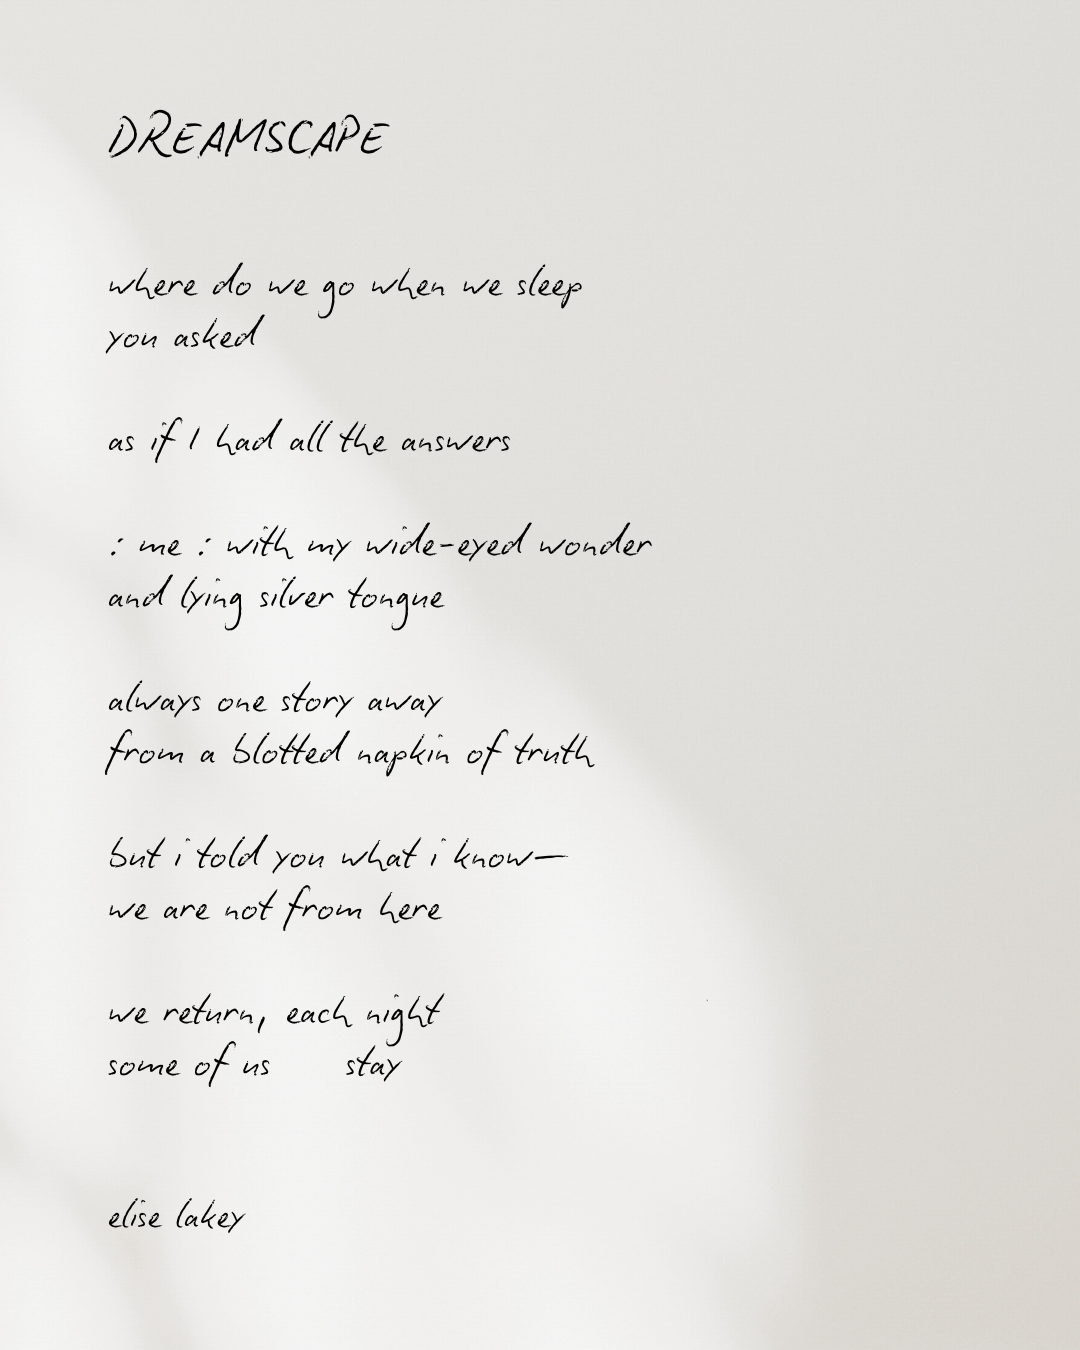 DREAMSCAPE
where do we go when we sleep
you asked
as if I had all the answers
: me : with my wide-eyed wonder
and lying silver tongue
always one story away
from a blotted napkin of truth
but i told you what i know—
we are not from here
we return, each night
some of us      stay
elise lakey